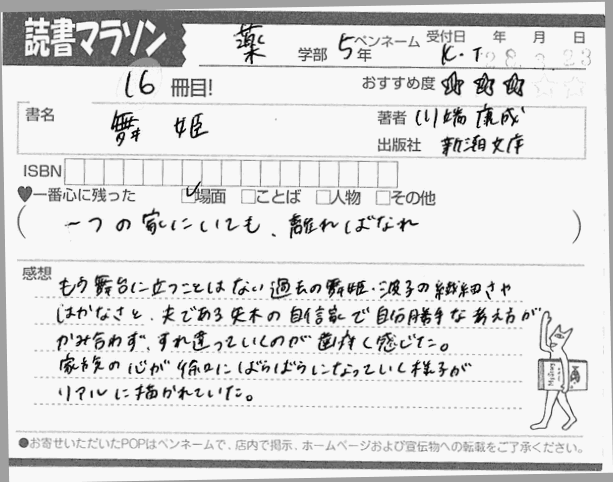 読書マラソン
薬 学部 5年 ペンネーム K.T 受付日 28年 2月 23日
16 冊目! おすすめ度 ★★★☆☆
書名 舞姫
著者 川端康成
出版社 新潮文庫
ISBN
♥一番心に残った ☑場面 □ことば □人物 □その他
(一つの家にいても、離ればなれ)
感想
もう舞台に立つことはない過去の舞姫・波子の繊細さや
はかなさと、夫である矢木の自信家で自分勝手な考え方が
かみ合わず、すれ違っていくのが歯痒く感じた。
家族の心が徐々にばらばらになっていく様子が
リアルに描かれていた。
●お寄せいただいたPOPはペンネームで、店内で掲示、ホームページおよび宣伝物への転載をご了承ください。